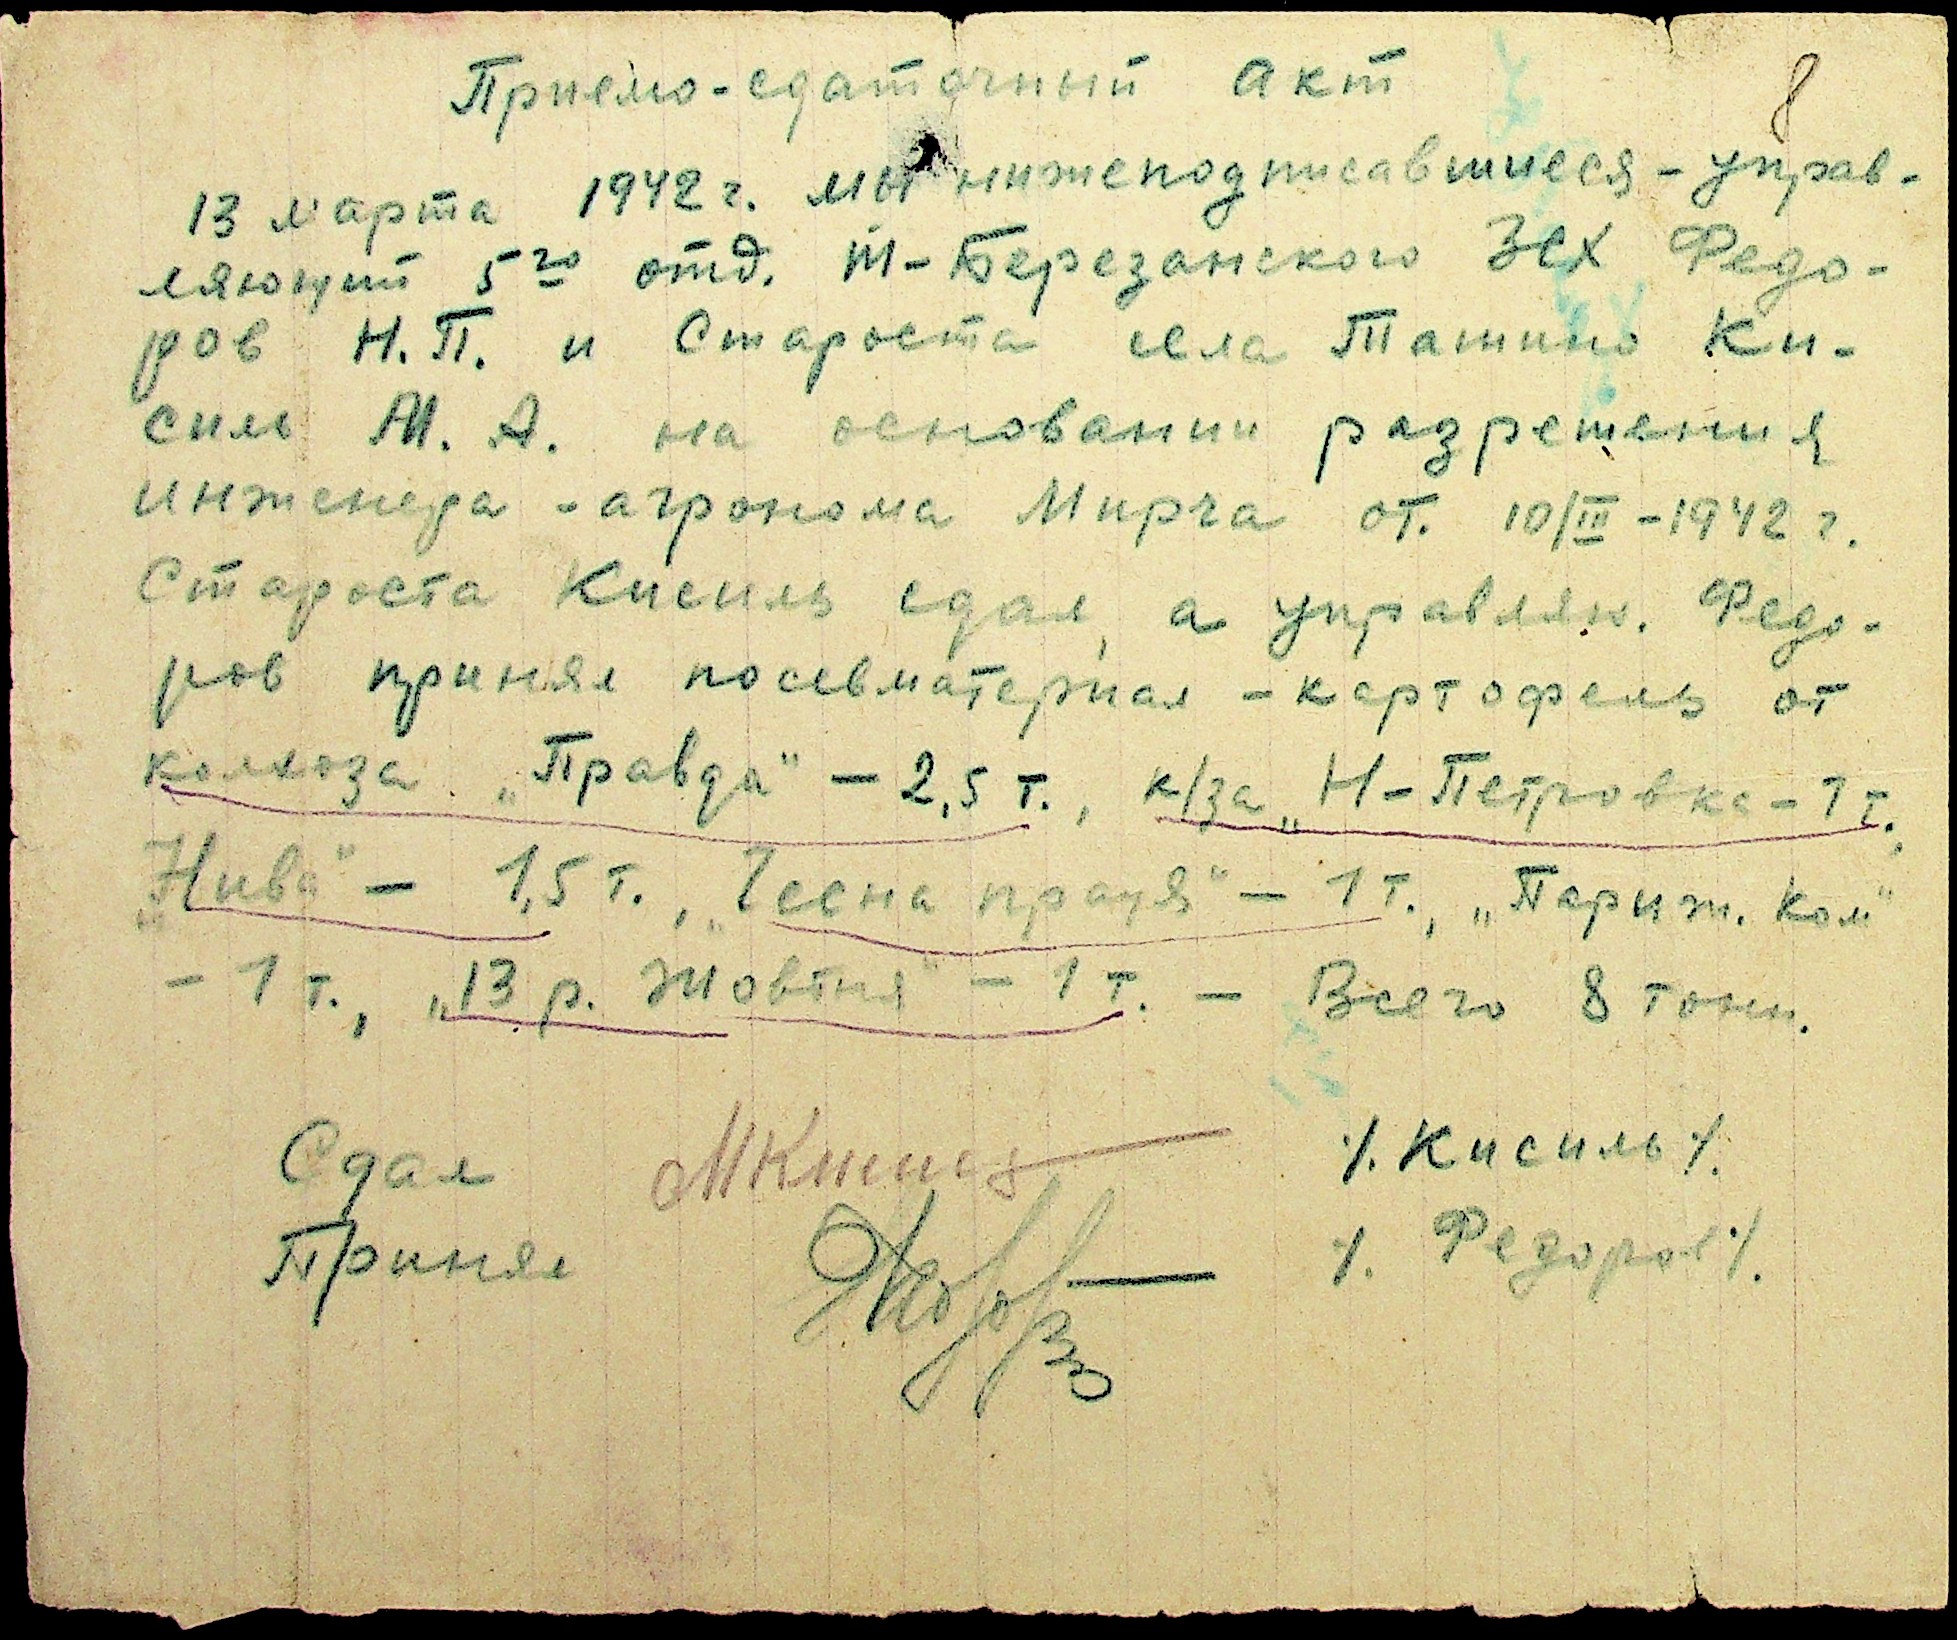 Приемо-сдаточный акт
8
13 марта 1942 г. мы нижеподписавшиеся - управ-
ляющий 5го отд. Т-Березанского ЗСХ Федо-
ров Н.П. и Староста села Ташино Ки-
силь М. А. на основании разрешения
инженера - агронома Мирча от. 10/III - 1942 г.
Староста Кисиль сдал, а управляю. Федо-
ров принял посевматериал - картофель от
колхоза „Правда" - 2,5 т., к/за „Н-Петровка - 1 т.,
„Нива" - 1,5 т., „Чесна праця" - 1 т., „Париж. Ком"
- 1 т., „13 р. Жовтня" - 1 т. - Всего 8 тонн.
Сдал МКисиль /. Кисиль /.
Принял /. Федоров /.